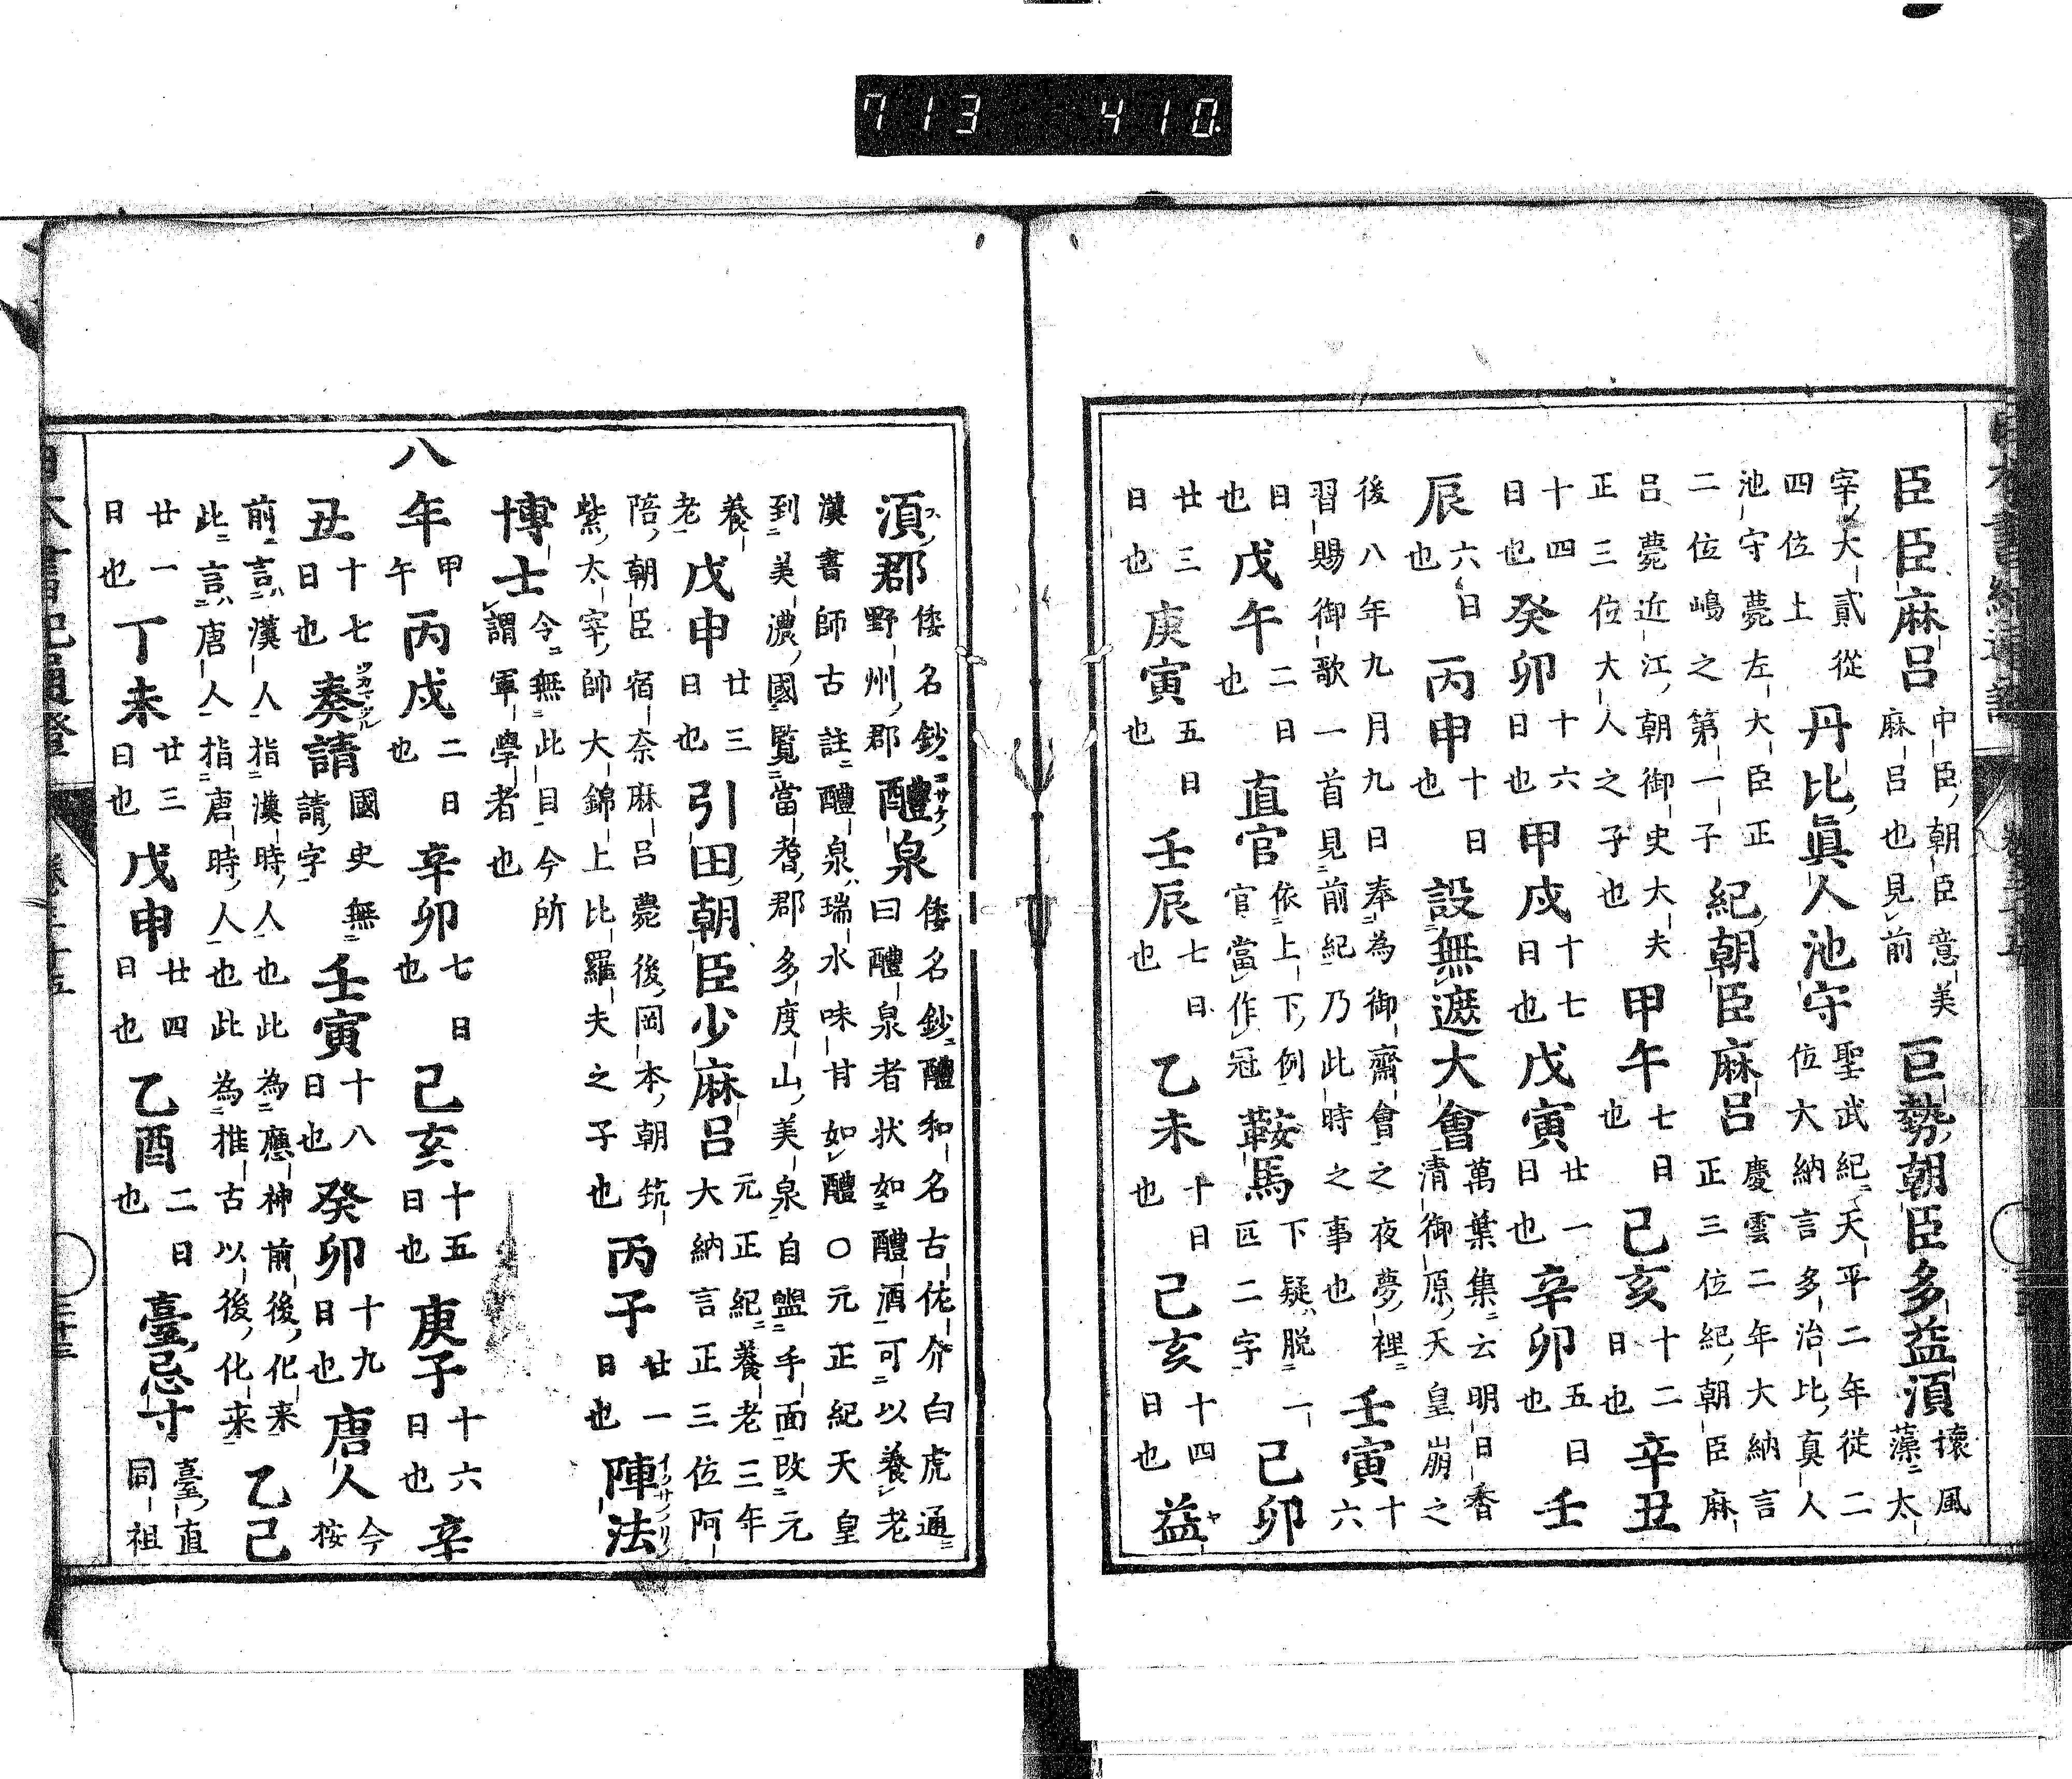 713 410
臣臣麻呂中臣朝臣意美麻呂也見前巨勢朝臣多益須懐風藻太
宰大貳從四位上丹比眞人池守聖武紀天平二年從二位大納言多治比真人
池守薨左大臣正二位嶋之第一子紀朝臣麻呂慶雲二年大納言正三位紀朝臣麻
呂薨近江朝御史大夫正三位大人之子也甲午七日也己亥十二日也辛丑
十四日也癸卯十六日也甲戌十七日也戊寅廿一日也辛卯五日也壬
辰六日也丙申十日也設無遮大會萬葉集云明日香清御原天皇崩之
後八年九月九日奉為御齋會之夜夢裡習賜御歌一首見前紀乃此時之事也壬寅十六
日也戊午二日也直官依上下例官當作冠鞍馬下疑脱一匹二字己卯
廿三日也庚寅五日也壬辰七日也乙未十日也己亥十四日也益
須郡倭名鈔野州郡醴泉倭名鈔醴和名古佐介白虎通曰醴泉者状如醴酒可以養老
漢書師古註醴泉瑞水味甘如醴○元正紀天皇到美濃國覧當耆郡多度山美泉自盥手面改元
養老戊申廿三日也引田朝臣少麻呂元正紀養老三年大納言正三位阿
陪朝臣宿奈麻呂薨後岡本朝筑紫太宰帥大錦上比羅夫之子也丙子廿一日也陣法
博士今無此目今所謂軍學者也
八年甲午丙戌二日也辛卯七日也己亥十五日也庚子十六日也辛
丑十七日也奏請國史無請字壬寅十八日也癸卯十九日也唐人今按
前言漢人指漢時人也此為應神前後化来此言唐人指唐時人也此為推古以後化来乙己
廿一日也丁未廿三日也戊申廿四日也乙酉二日也臺忌寸臺直同祖